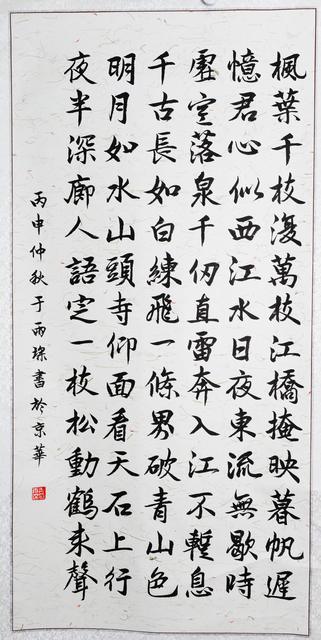 楓葉千枝復萬枝江橋掩映暮帆遲
憶君心似西江水日夜東流無歇時
虛空落泉千仞直雷奔入江不暫息
千古長如白練飛一條界破青山色
明月如水山頭寺仰面看天石上行
夜半深廊人語定一枝松動鶴來聲
丙申仲秋于雨琛書於京華